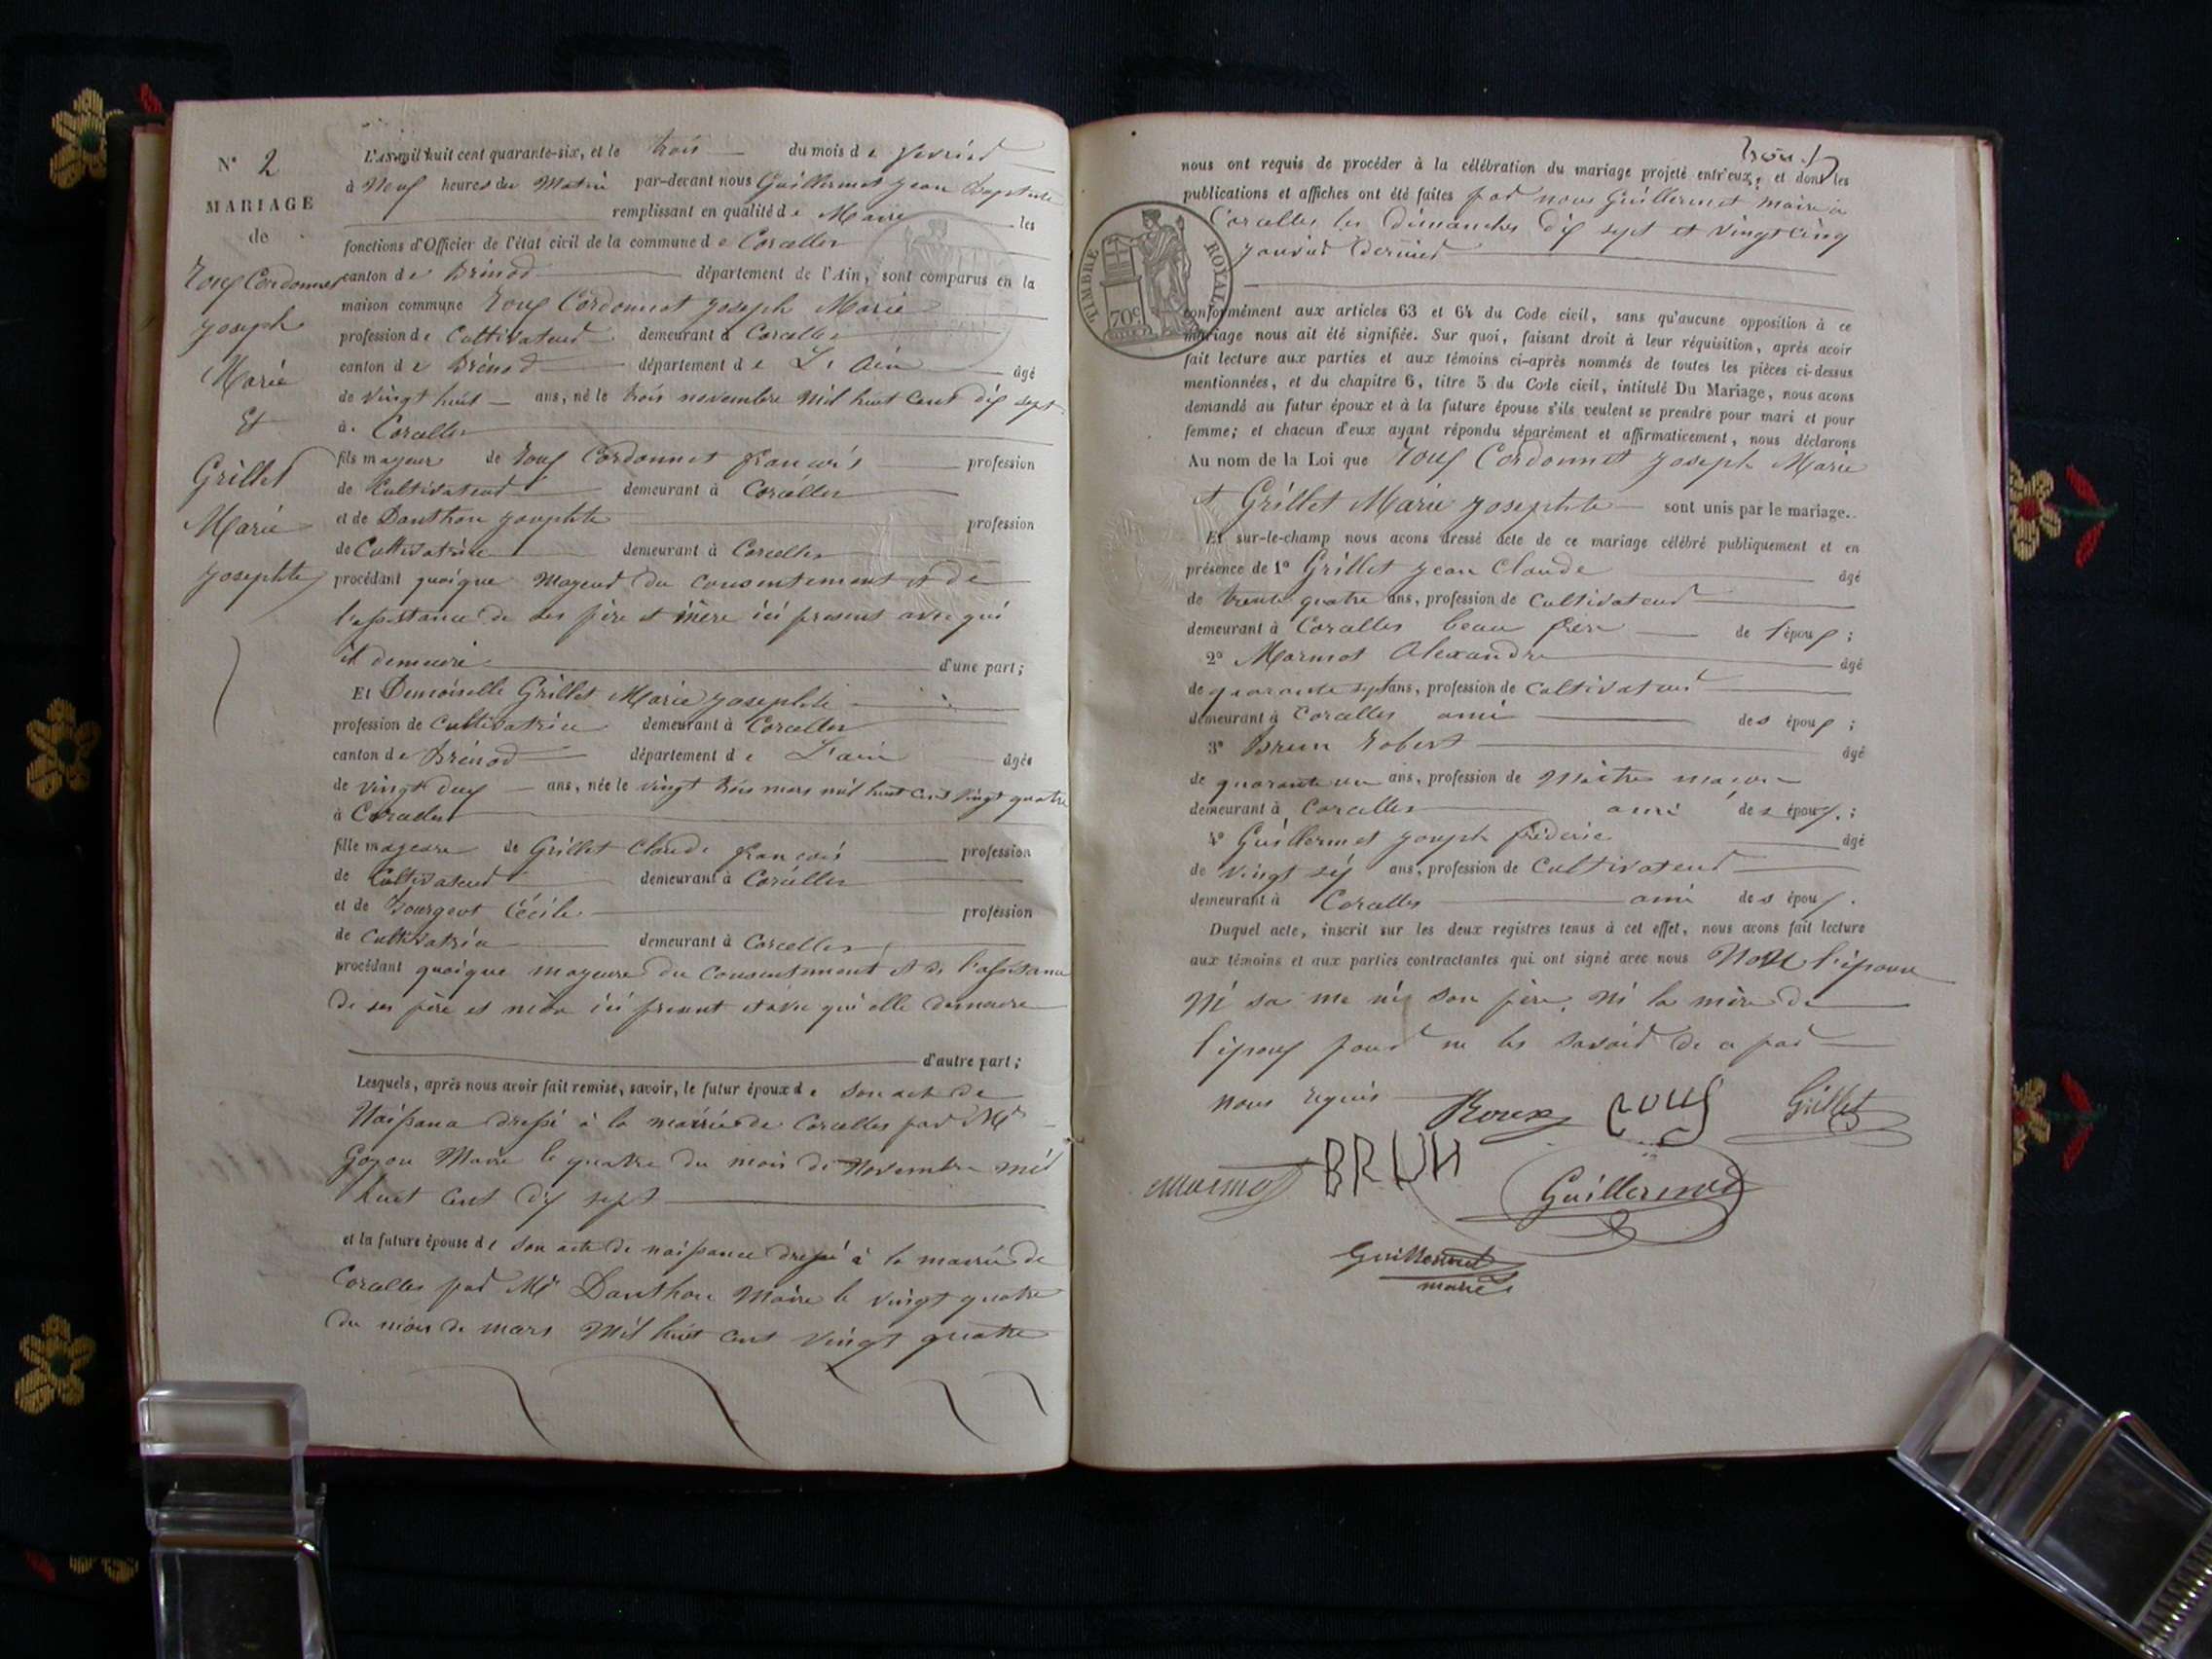 N° 2
MARIAGE
de
Roux Cordonnet
Joseph
Marie
Et
Grillet
Marie
Josephte
L'an mil huit cent quarante-six, et le trois du mois de fevrier
à Neuf heures du Matin par-devant nous Guillermet Jean Baptiste
remplissant en qualité de Maire les
fonctions d'Officier de l'état civil de la commune de Corcelles
canton de Brénod département de l'Ain, sont comparus en la
maison commune Roux Cordonnet Joseph Marie
profession de Cultivateur demeurant à Corcelles
canton de Brénod département de L'Ain âgé
de vingt huit ans, né le trois novembre mil huit cent dix sept
à Corcelles
fils majeur de Roux Cordonnet françois profession
de Cultivateur demeurant à Corcelles
et de Danthon Josephte profession
de Cultivatrice demeurant à Corcelles
procédant quoique Mageur du consentement et de
l'assistance de ses père et mère ici present avec qui
il demeure d'une part;
Et Demoiselle Grillet Marie Josephte
profession de Cultivatrice demeurant à Corcelles
canton de Brénod département de L'ain âgée
de vingt deux ans, née le vingt trois mars mil huit cent vingt quatre
à Corcelles
fille mageure de Grillet Claude françois profession
de Cultivateur demeurant à Corcelles
et de Bourgeot Cécile profession
de Cultivatrice demeurant à Corcelles
procédant quoique mageure du consentement et de l'assistance
de ses père et mère ici present et avec qui elle demeure
d'autre part;
Lesquels, après nous avoir fait remise, savoir, le futur époux de son acte de
Naissance dressé à la mairie de Corcelles par Mr
Goyon Maire le quatre du mois de Novembre mil
huit cent dix sept
et la future épouse de son acte de naissance dressé à la mairie de
Corcelles par Mr Danthon Maire le vingt quatre
du mois de mars Mil huit cent vingt quatre
trois
nous ont requis de procéder à la célébration du mariage projeté entr'eux, et dont les
publications et affiches ont été faites par nous Guillermet maire à
Corcelles les dimanches dix sept et vingt cinq
janvier dernier
TIMBRE ROYAL
70c
conformément aux articles 63 et 64 du Code civil, sans qu'aucune opposition à ce
mariage nous ait été signifiée. Sur quoi, faisant droit à leur réquisition, après avoir
fait lecture aux parties et aux témoins ci-après nommés de toutes les pièces ci-dessus
mentionnées, et du chapitre 6, titre 5 du Code civil, intitulé Du Mariage, nous avons
demandé au futur époux et à la future épouse s'ils veulent se prendre pour mari et pour
femme; et chacun d'eux ayant répondu séparément et affirmativement, nous déclarons
Au nom de la Loi que Roux Cordonnet Joseph Marie
et Grillet Marie Josephte sont unis par le mariage.
Et sur-le-champ nous avons dressé acte de ce mariage célébré publiquement et en
présence de 1° Grillet Jean Claude âgé
de trente quatre ans, profession de Cultivateur
demeurant à Corcelles beau frère de l'époux;
2° Marmot Alexandre âgé
de quarante sept ans, profession de Cultivateur
demeurant à Corcelles ami des époux;
3° Brun Robert âgé
de quarante un ans, profession de Maitre maçon
demeurant à Corcelles ami des époux;
4° Guillermet Joseph fréderic âgé
de vingt six ans, profession de Cultivateur
demeurant à Corcelles ami des époux.
Duquel acte, inscrit sur les deux registres tenus à cet effet, nous avons fait lecture
aux témoins et aux parties contractantes qui ont signé avec nous Non l'épouse
Ni sa me ni son père, Ni la mère de
l'époux pour ne les savoir de a par
nous requis Roux roux Grillet
Marmot BRUN Guillermet
Guillermet
maire